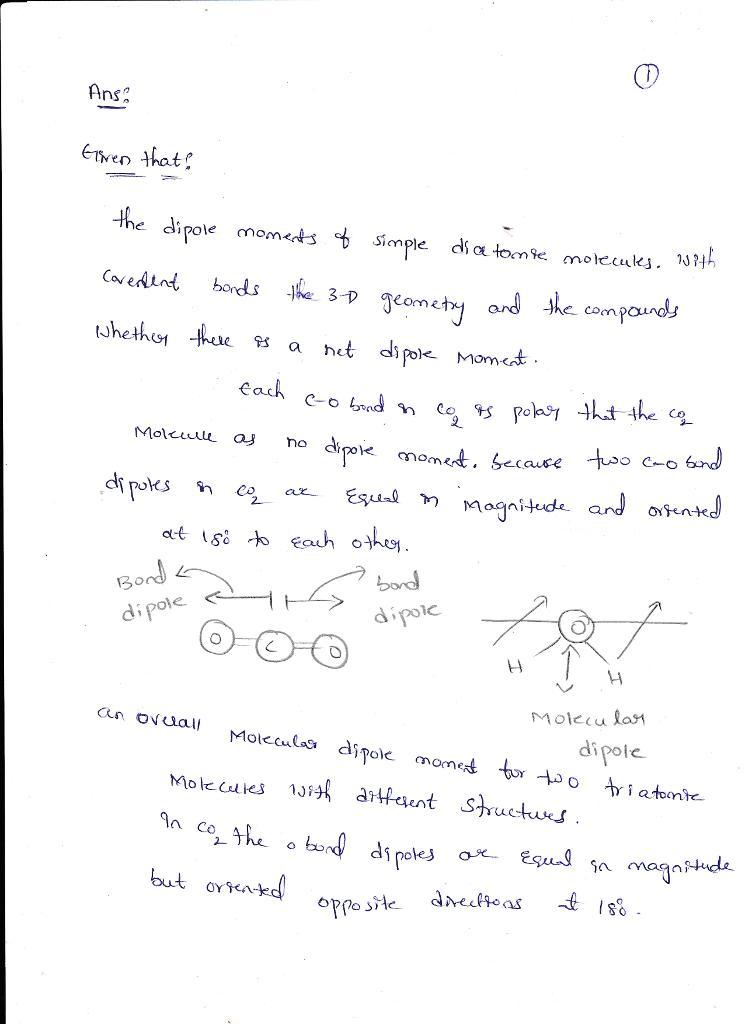 1
Ans:
Given that:
the dipole moments of simple diatomic molecules. with
covenlent bonds the 3-D geometry and the compounds
whether there is a net dipole Moment.
Each C-O bond in CO2 is polar that the CO2
Molecule as no dipole moment. because two C-O bond
dipoles in CO2 are Equal in Magnitude and oriented
at 180 to each other.
Bond dipole
bond dipole
O C O
O
H H
Molecular dipole
an overall Molecular dipole moment for two triatomic
Molecules with different structures.
In CO2 the o bond dipoles are Equal in magnitude
but oriented opposite directions at 180.